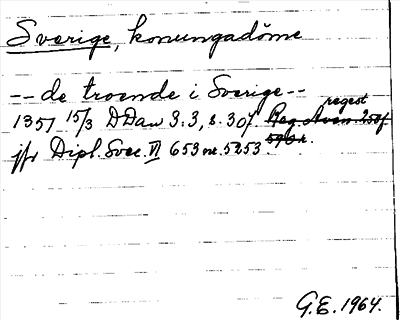 Sverige, konungadöme
-- de troende i Sverige --
regest
1351 15/3 DDan 3:3, s. 307. Reg. Aven. 250f.
jfr Dipl. Svec. VI 653 nr. 5253.
G.E. 1964.